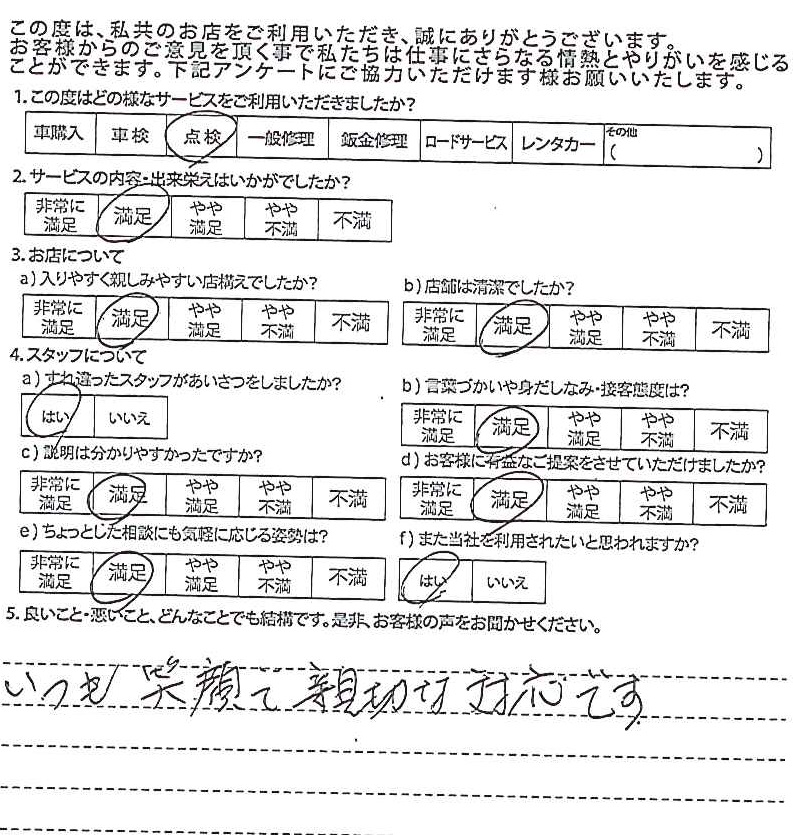 この度は、私共のお店をご利用いただき、誠にありがとうございます。
お客様からのご意見を頂く事で私たちは仕事にさらなる情熱とやりがいを感じる
ことができます。下記アンケートにご協力いただけます様お願いいたします。
1.この度はどの様なサービスをご利用いただきましたか?
車購入 車検 点検 一般修理 鈑金修理 ロードサービス レンタカー その他 ( )
2.サービスの内容・出来栄えはいかがでしたか?
非常に満足 満足 やや満足 やや不満 不満
3.お店について
a)入りやすく親しみやすい店構えでしたか?
非常に満足 満足 やや満足 やや不満 不満
b)店舗は清潔でしたか?
非常に満足 満足 やや満足 やや不満 不満
4.スタッフについて
a)すれ違ったスタッフがあいさつをしましたか?
はい いいえ
b)言葉づかいや身だしなみ・接客態度は?
非常に満足 満足 やや満足 やや不満 不満
c)説明は分かりやすかったですか?
非常に満足 満足 やや満足 やや不満 不満
d)お客様に有益なご提案をさせていただけましたか?
非常に満足 満足 やや満足 やや不満 不満
e)ちょっとした相談にも気軽に応じる姿勢は?
非常に満足 満足 やや満足 やや不満 不満
f)また当社を利用されたいと思われますか?
はい いいえ
5.良いこと・悪いこと、どんなことでも結構です。是非、お客様の声をお聞かせください。
いつも笑顔で親切な対応です